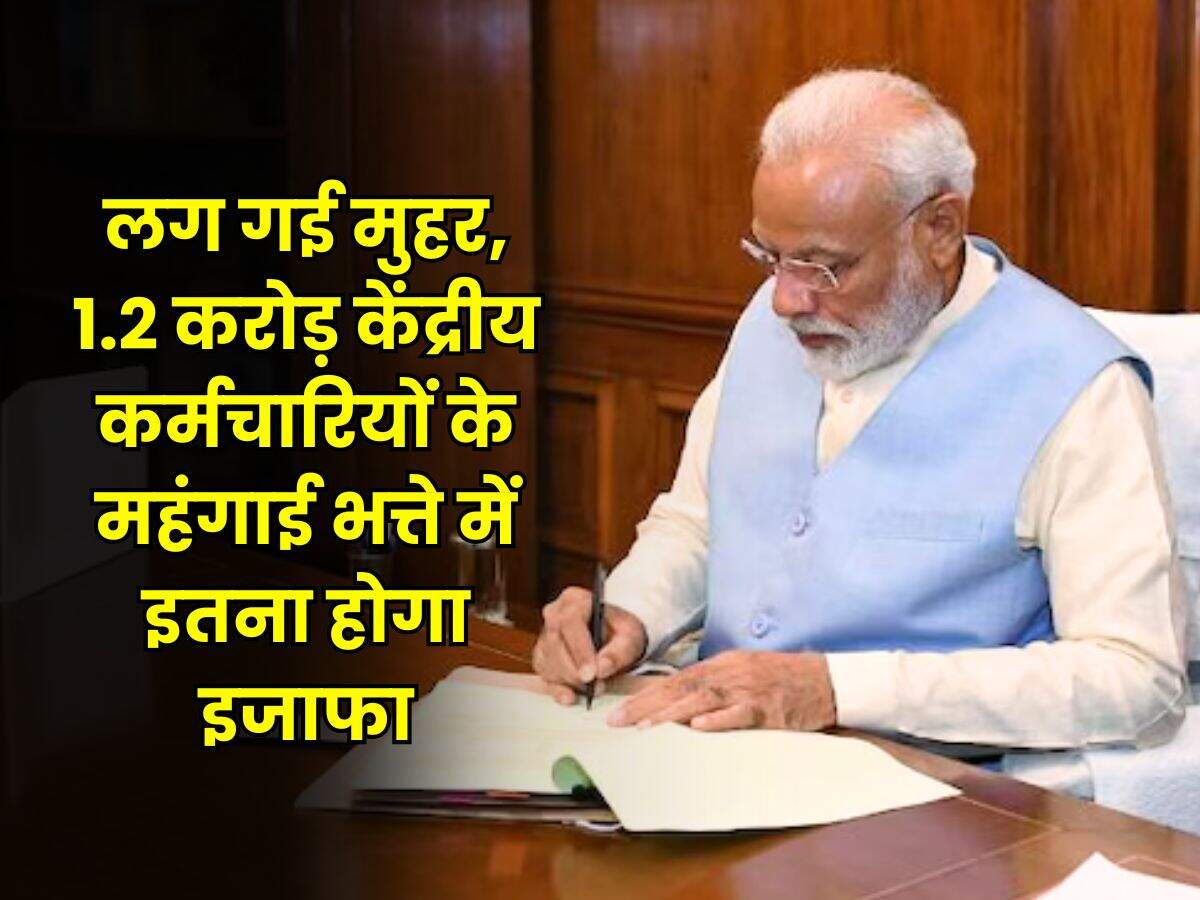 लग गई मुहर,
1.2 करोड़ केंद्रीय
कर्मचारियों के
महंगाई भत्ते में
इतना होगा
इजाफा